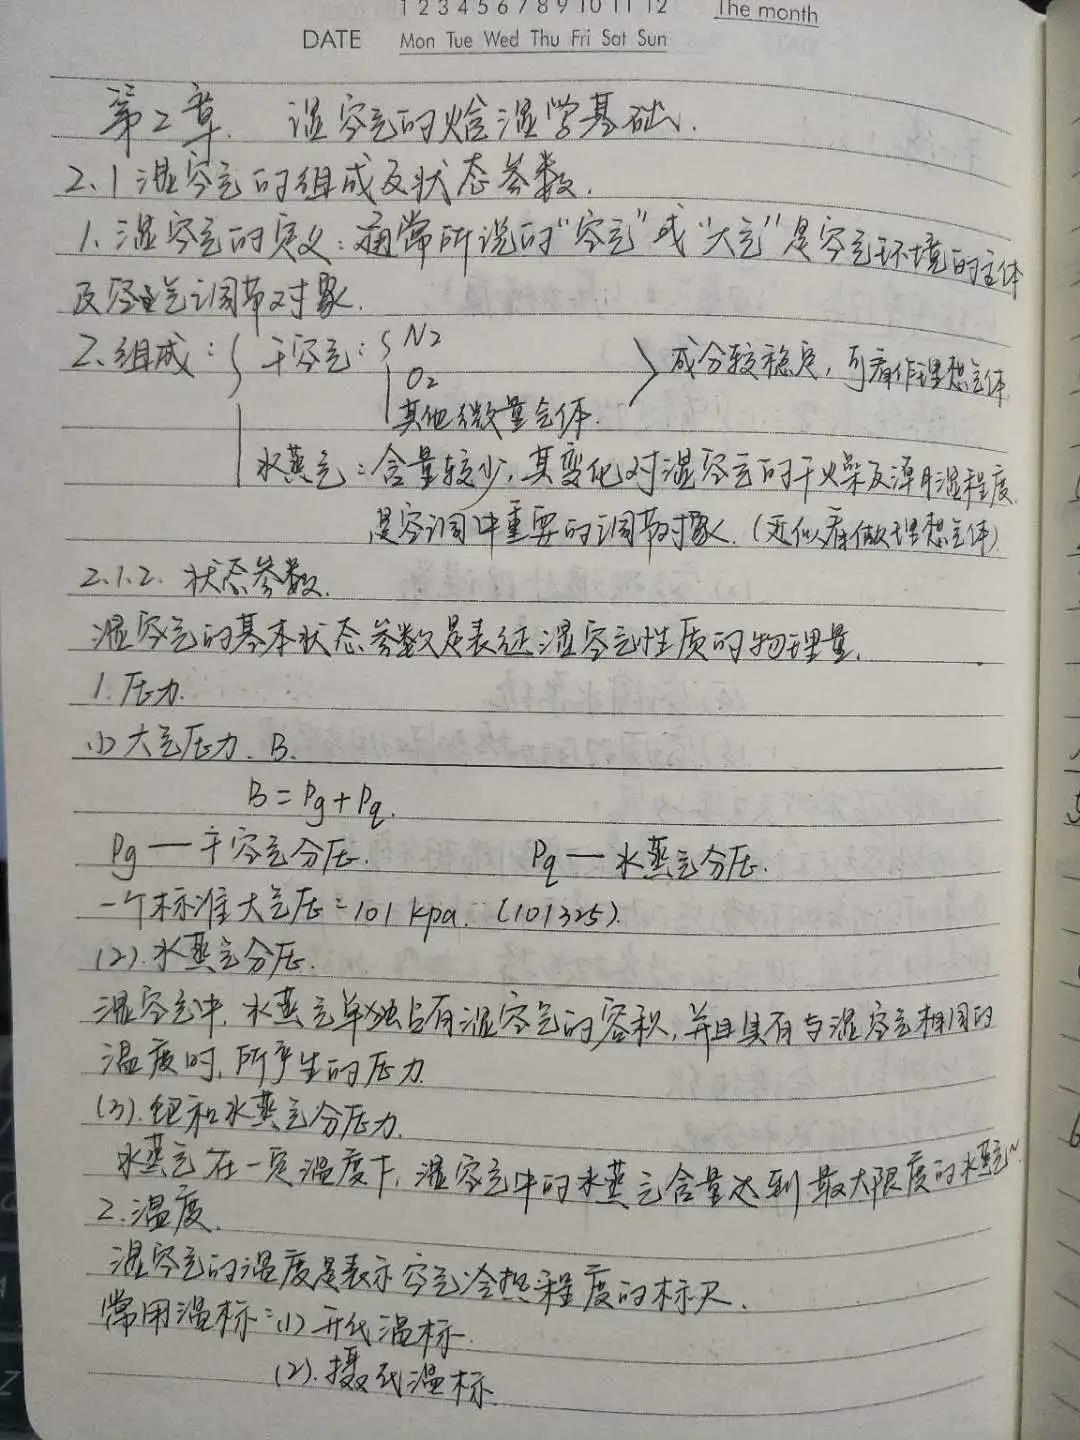 1 2 3 4 5 6 7 8 9 10 11 12 The month
DATE Mon Tue Wed Thu Fri Sat Sun
第2章. 湿空气的焓湿学基础.
2.1 湿空气的组成及状态参数.
1. 湿空气的定义：通常所说的“空气”或“大气”是空气环境的主体
及空气调节对象.
2. 组成：{ 干空气：{ N2
O2 } 成分较稳定，可看作理想气体
其他微量气体.
水蒸气：含量较少，其变化对湿空气的干燥及潮湿程度
是空调中重要的调节对象.（近似看做理想气体）
2.1.2. 状态参数.
湿空气的基本状态参数是表征湿空气性质的物理量.
1. 压力.
(1) 大气压力. B.
B = Pg + Pq.
Pg — 干空气分压. Pq — 水蒸气分压.
一个标准大气压 = 101 kpa. (101325).
(2). 水蒸气分压.
湿空气中，水蒸气单独占有湿空气的容积，并且具有与湿空气相同的
温度时，所产生的压力.
(3). 饱和水蒸气分压力.
水蒸气在一定温度下，湿空气中的水蒸气含量达到最大限度的水蒸气~
2. 温度.
湿空气的温度是表示空气冷热程度的标尺.
常用温标：(1) 开氏温标.
(2). 摄氏温标